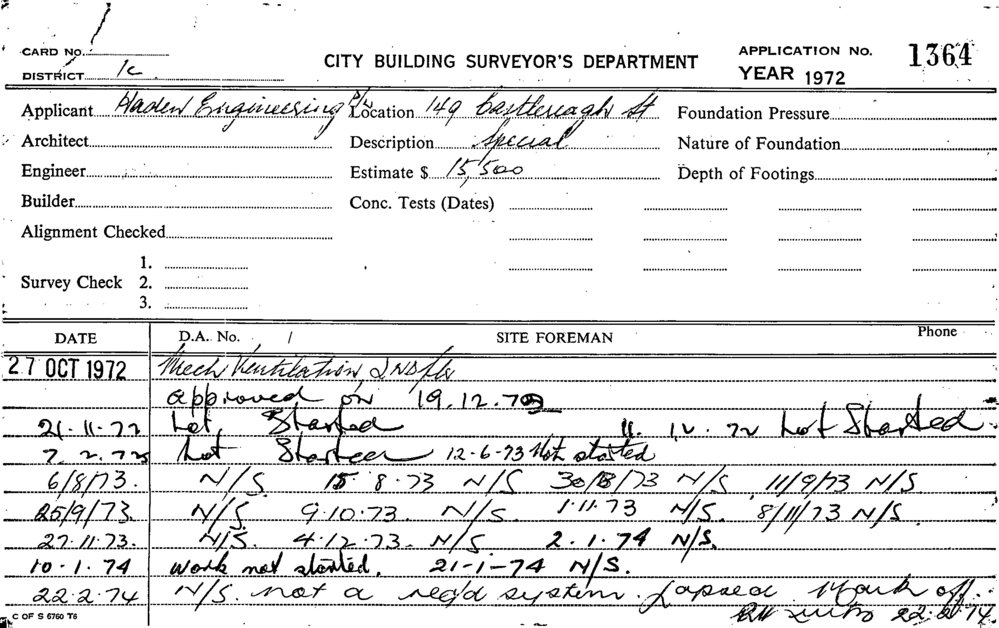 CARD No. 1
DISTRICT 1c
CITY BUILDING SURVEYOR'S DEPARTMENT
APPLICATION No. 1364
YEAR 1972
Applicant Haden Engineering P/L Location 149 Castlereagh St Foundation Pressure
Architect Description Special Nature of Foundation
Engineer Estimate $ 15,500 Depth of Footings
Builder Conc. Tests (Dates)
Alignment Checked
Survey Check 1.
2.
3.
DATE D.A. No. / SITE FOREMAN Phone
27 OCT 1972 Mech Ventilation, 2ND flr
approved on 19.12.72
21.11.72 Not Started 11.12.72 Not Started
7.2.73 Not Started 12-6-73 Not started
6/8/73. N/S. 15.8.73 N/S 30/8/73 N/S 11/9/73 N/S
25/9/73. N/S. 9.10.73. N/S. 1.11.73 N/S. 8/11/73 N/S
27.11.73. N/S. 4.12.73. N/S. 2.1.74 N/S.
10.1.74 work not started. 21-1-74 N/S.
22.2.74 N/S. not a req'd system. Lapsed Mark off.
22.2.74.
C OF S 6760 T6